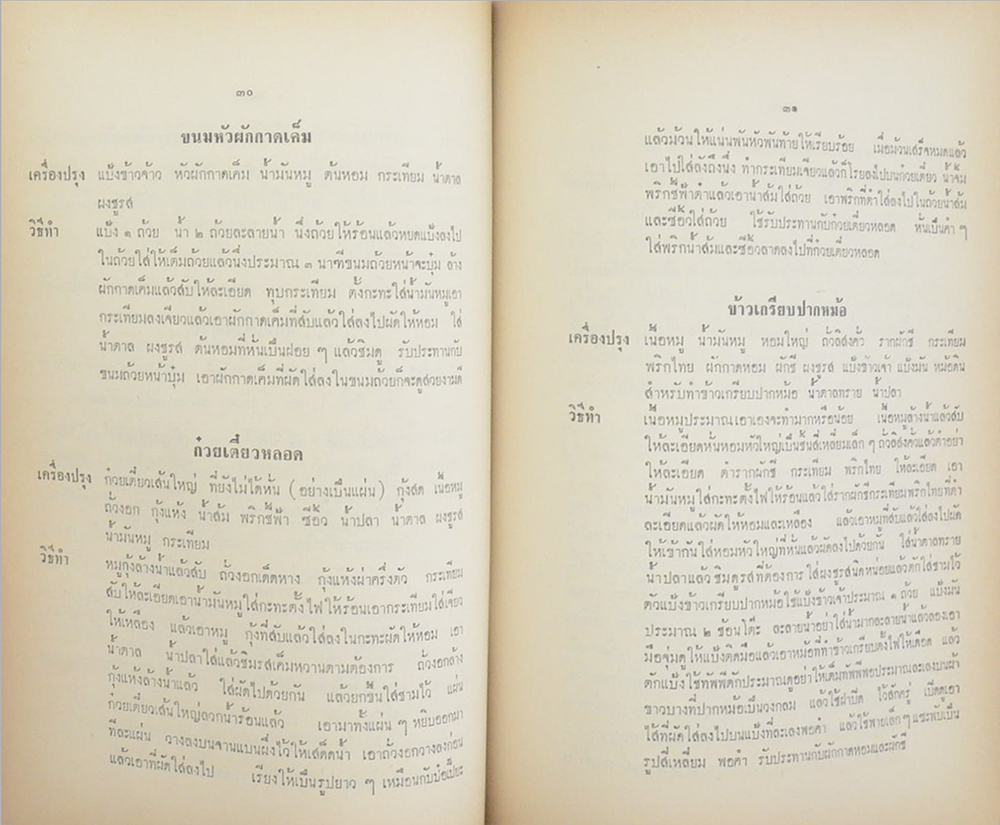 ๓๐
ขนมหัวผักกาดเค็ม
เครื่องปรุง แป้งข้าวจ้าว หัวผักกาดเค็ม น้ำมันหมู ต้นหอม กระเทียม น้ำตาล
ผงชูรส
วิธีทำ แป้ง ๑ ถ้วย น้ำ ๒ ถ้วยละลายน้ำ นึ่งถ้วยให้ร้อนแล้วหยดแป้งลงไป
ในถ้วยใส่ให้เต็มถ้วยแล้วนึ่งประมาณ ๓ นาฑีขนมถ้วยหน้าจะบุ๋ม ล้าง
ผักกาดเค็มแล้วสับให้ละเอียด ทุบกระเทียม ตั้งกะทะใส่น้ำมันหมูเอา
กระเทียมลงเจียวแล้วเอาผักกาดเค็มที่สับแล้วใส่ลงไปผัดให้หอม ใส่
น้ำตาล ผงชูรส ต้นหอมที่หั่นเป็นฝอย ๆ แล้วชิมดู รับประทานกับ
ขนมถ้วยหน้าบุ๋ม เอาผักกาดเค็มที่ผัดใส่ลงในขนมถ้วยก็จะดูสวยงามดี
ก๋วยเตี๋ยวหลอด
เครื่องปรุง ก๋วยเตี๋ยวเส้นใหญ่ ที่ยังไม่ได้หั่น (อย่างเป็นแผ่น) กุ้งสด เนื้อหมู
ถั่วงอก กุ้งแห้ง น้ำส้ม พริกชี้ฟ้า ซีอิ๊ว น้ำปลา น้ำตาล ผงชูรส
น้ำมันหมู กระเทียม
วิธีทำ หมูกุ้งล้างน้ำแล้วสับ ถั่วงอกเด็ดหาง กุ้งแห้งผ่าครึ่งตัว กระเทียม
สับให้ละเอียดเอาน้ำมันหมูใส่กะทะตั้งไฟให้ร้อนเอากระเทียมใส่เจียว
ให้เหลือง แล้วเอาหมู กุ้งที่สับแล้วใส่ลงในกะทะผัดให้หอม เอา
น้ำตาล น้ำปลาใส่แล้วชิมรสเค็มหวานตามต้องการ ถั่วงอกล้าง
กุ้งแห้งล้างน้ำแล้ว ใส่ผัดไปด้วยกัน แล้วยกขึ้นใส่ชามไว้ แผ่น
ก๋วยเตี๋ยวเส้นใหญ่ลวกน้ำร้อนแล้ว เอามาทั้งแผ่น ๆ หยิบออกมา
ทีละแผ่น วางลงบนจานแบนผึ่งไว้ให้เสด็ดน้ำ เอาถั่วงอกวางลงก่อน
แล้วเอาที่ผัดใส่ลงไป เรียงให้เป็นรูปยาว ๆ เหมือนกับป่อเปี๊ยะ
๓๑
แล้วม้วนให้แน่นพันหัวพันท้ายให้เรียบร้อย เมื่อม้วนเสร็จหมดแล้ว
เอาไปใส่ลังถึงนึ่ง ทำกระเทียมเจียวแล้วก็โรยลงไปบนก๋วยเตี๋ยว น้ำจิ้ม
พริกชี้ฟ้าตำแล้วเอาน้ำส้มใส่ถ้วย เอาพริกที่ตำใส่ลงไปในถ้วยน้ำส้ม
และซีอิ๊วใส่ถ้วย ใช้รับประทานกับก๋วยเตี๋ยวหลอด หั่นเป็นคำ ๆ
ใส่พริกน้ำส้มและซีอิ๊วลาดลงไปที่ก๋วยเตี๋ยวหลอด
ข้าวเกรียบปากหม้อ
เครื่องปรุง เนื้อหมู น้ำมันหมู หอมใหญ่ ถั่วลิสงคั่ว รากผักชี กระเทียม
พริกไทย ผักกาดหอม ผักชี ผงชูรส แป้งข้าวเจ้า แป้งมัน หม้อดิน
สำหรับทำข้าวเกรียบปากหม้อ น้ำตาลทราย น้ำปลา
วิธีทำ เนื้อหมูประมาณเอาเองจะทำมากหรือน้อย เนื้อหมูล้างน้ำแล้วสับ
ให้ละเอียดหั่นหอมหัวใหญ่เป็นชิ้นสี่เหลี่ยมเล็ก ๆ ถั่วลิสงคั่วแล้วตำอย่า
ให้ละเอียด ตำรากผักชี กระเทียม พริกไทย ให้ละเอียด เอา
น้ำมันหมูใส่กะทะตั้งไฟให้ร้อนแล้วใส่รากผักชีกระเทียมพริกไทยที่ตำ
ละเอียดแล้วผัดให้หอมและเหลือง แล้วเอาหมูที่สับแล้วใส่ลงไปผัด
ให้เข้ากันใส่หอมหัวใหญ่ที่หั่นแล้วผัดลงไปด้วยกัน ใส่น้ำตาลทราย
น้ำปลาแล้วชิมดูรสที่ต้องการใส่ผงชูรสนิดหน่อยแล้วตักใส่ชามไว้
ตัวแป้งข้าวเกรียบปากหม้อใช้แป้งข้าวเจ้าประมาณ ๑ ถ้วย แป้งมัน
ประมาณ ๒ ช้อนโต๊ะ ละลายน้ำอย่าใส่น้ำมากละลายน้ำแล้วลองเอา
มือจุ่มดูให้แป้งติดมือแล้วเอาหม้อที่ทำข้าวเกรียบตั้งไฟให้เดือด แล้ว
ตักแป้งใช้ทัพพีตักประมาณดูอย่าให้เต็มทัพพีพอประมาณละเลงบนผ้า
ขาวบางที่ปากหม้อเป็นวงกลม แล้วใช้ฝาปิด ไว้สักครู่ เปิดดูเอา
ไส้ที่ผัดใส่ลงไปบนแป้งที่ละเลงพอคำ แล้วใช้พายเล็กๆแซะพับเป็น
รูปสี่เหลี่ยม พอคำ รับประทานกับผักกาดหอมและผักชี